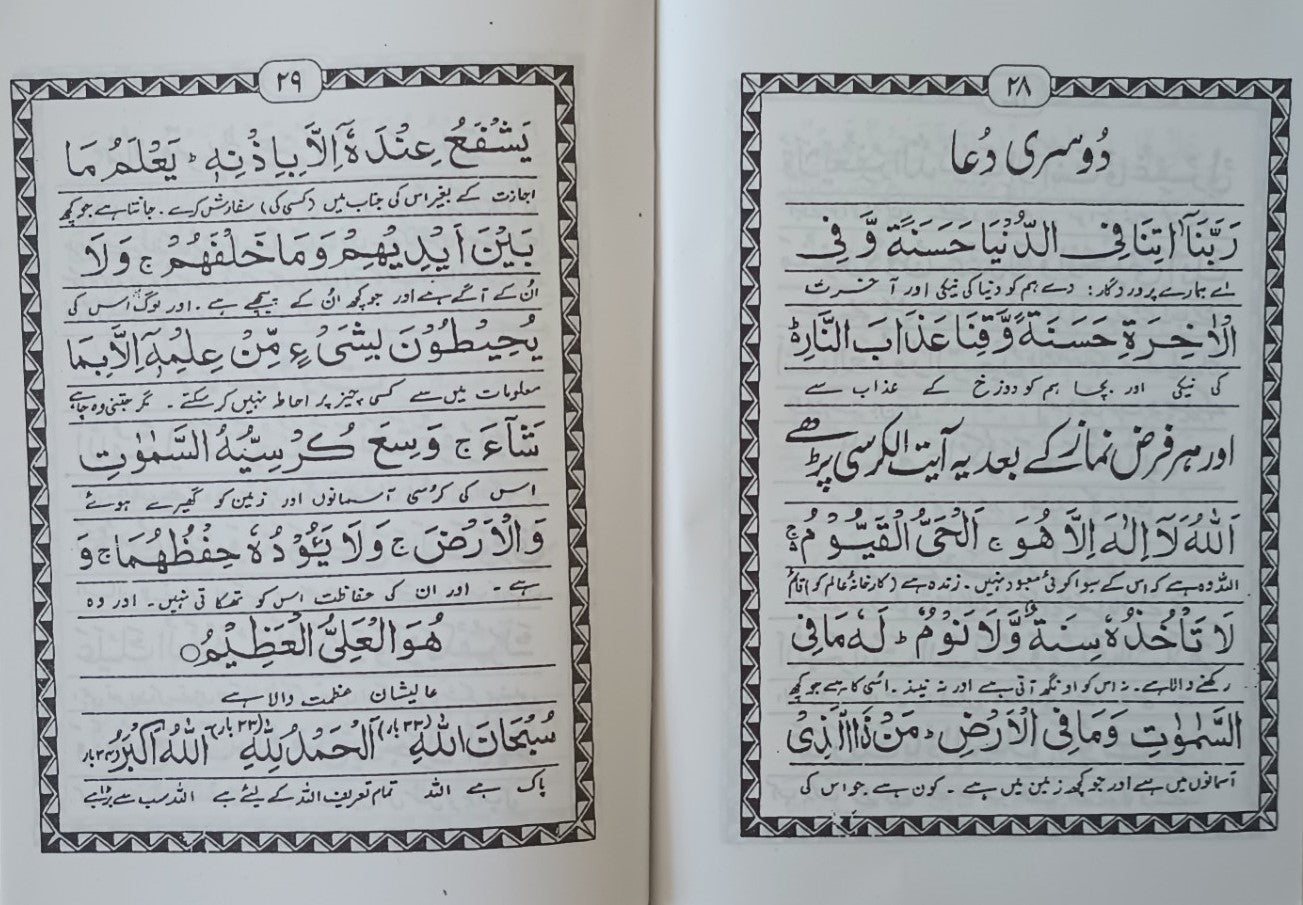 ۲۸
دُوسری دُعا
رَبَّنَآ اٰتِنَا فِى الدُّنْيَا حَسَنَةً وَّ فِى
اے ہمارے پروردگار: دے ہم کو دنیا کی نیکی اور آخرت
الْاٰخِرَةِ حَسَنَةً وَّقِنَا عَذَابَ النَّارِ ط
کی نیکی اور بچا ہم کو دوزخ کے عذاب سے
اور ہر فرض نماز کے بعد یہ آیت الکرسی پڑھے
اَللّٰهُ لَآ اِلٰهَ اِلَّا هُوَ ج اَلْحَىُّ الْقَيُّوْمُ ج
اللہ وہ ہے کہ اس کے سوا کوئی معبود نہیں۔ زندہ ہے (کارخانۂ عالم کو) قائم
لَا تَاْخُذُهٗ سِنَةٌ وَّلَا نَوْمٌ ط لَهٗ مَا فِى
رکھنے والا ہے۔ نہ اس کو اونگھ آتی ہے اور نہ نیند۔ اُسی کا ہے جو کچھ
السَّمٰوٰتِ وَمَا فِى الْاَرْضِ ط مَنْ ذَا الَّذِىْ
آسمانوں میں ہے اور جو کچھ زمین میں ہے۔ کون ہے جو اس کی
۲۹
يَشْفَعُ عِنْدَهٗٓ اِلَّا بِاِذْنِهٖ ط يَعْلَمُ مَا
اجازت کے بغیر اس کی جناب میں (کسی کی) سفارش کرے۔ جانتا ہے جو کچھ
بَيْنَ اَيْدِيْهِمْ وَمَا خَلْفَهُمْ ج وَلَا
اُن کے آگے ہے اور جو کچھ اُن کے پیچھے ہے۔ اور لوگ اس کی
يُحِيْطُوْنَ بِشَىْءٍ مِّنْ عِلْمِهٖٓ اِلَّا بِمَا
معلومات میں سے کسی چیز پر احاطہ نہیں کر سکتے۔ مگر جتنی وہ چاہے
شَآءَ ج وَسِعَ كُرْسِيُّهُ السَّمٰوٰتِ
اس کی کرسی آسمانوں اور زمین کو گھیرے ہوئے
وَالْاَرْضَ ج وَلَا يَئُوْدُهٗ حِفْظُهُمَا ج وَ
ہے۔ اور ان کی حفاظت اس کو تھکاتی نہیں۔ اور وہ
هُوَ الْعَلِىُّ الْعَظِيْمُ ○
عالیشان عظمت والا ہے
سُبْحَانَ اللّٰهِ (۳۳ بار) اَلْحَمْدُ لِلّٰهِ (۳۳ بار) اَللّٰهُ اَكْبَرُ ۳۴ بار
پاک ہے اللہ تمام تعریف اللہ کے لیئے ہے اللہ سب سے بڑا ہے